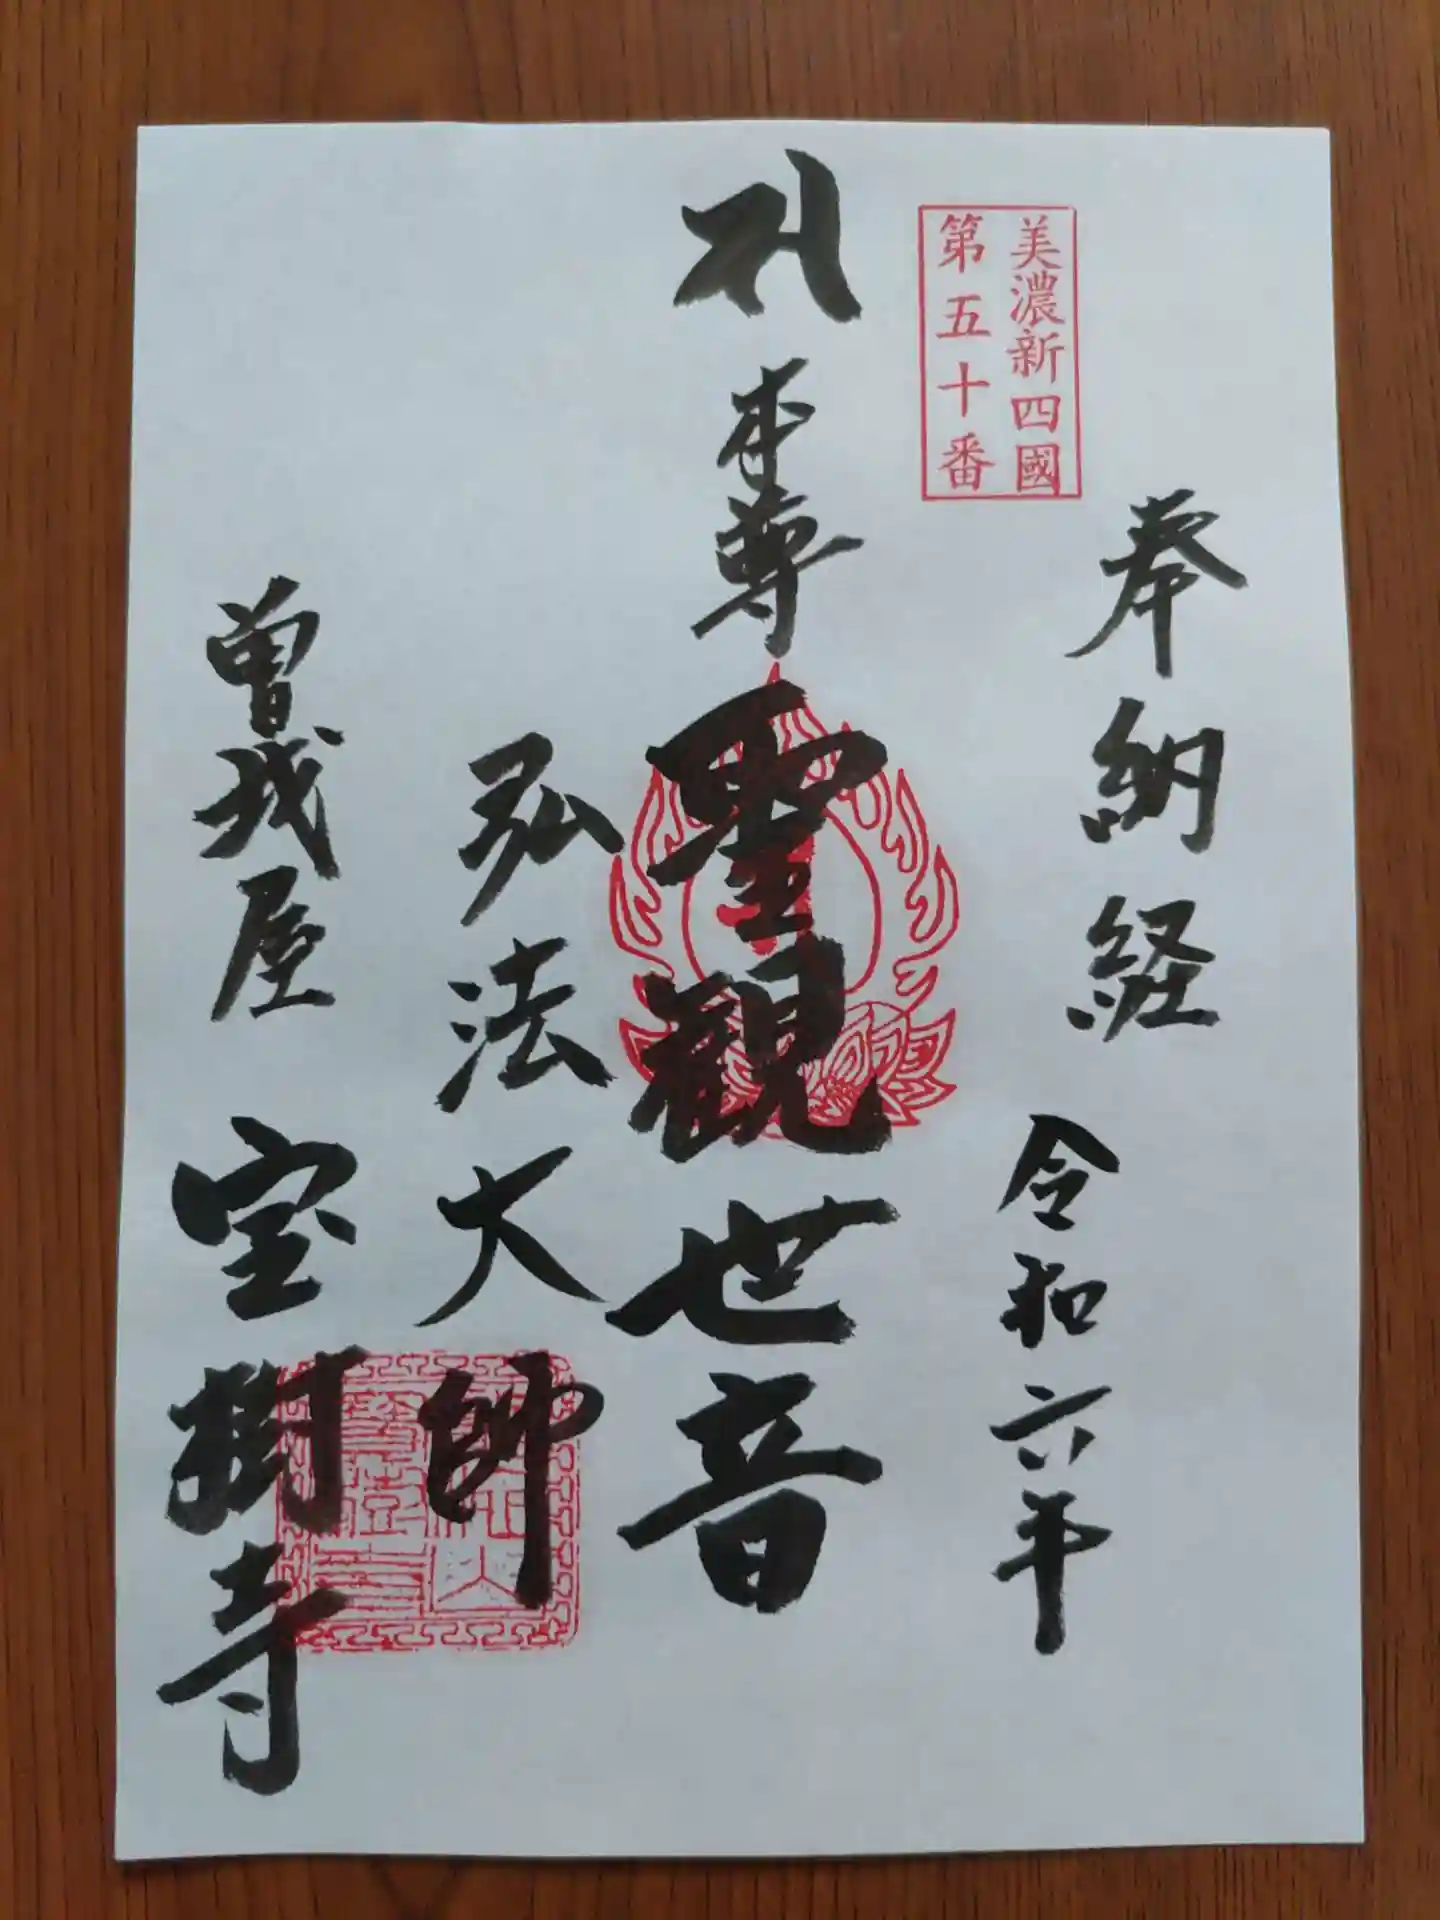 美濃新四國
第五十番
奉納経 令和六年
本尊 聖観世音
弘法大師
曽我屋 宝樹寺